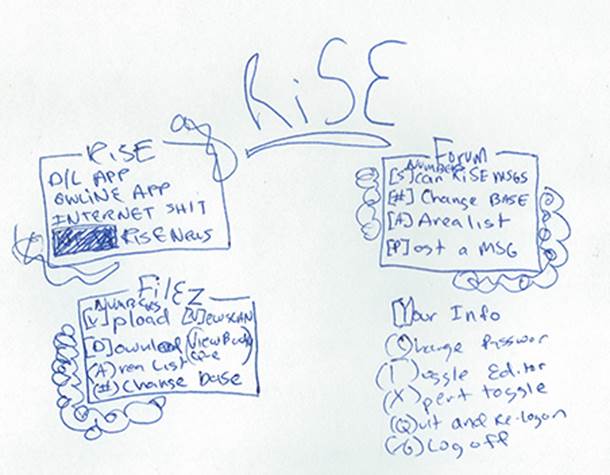 RiSE
RiSE
D/L APP
ONLINE APP
INTERNET SHIT
RiSE News
Forum
NUMBERS
[S]can RiSE MSGS
[#] Change BASE
[A] Area list
[P]ost a MSG
FilEZ
Numbers
[U]pload [N]EWSCAN
[D]ownload (View Batch
Que)
(A)rea List
(#) Change base
[Y]our Info
(C)hange Passwor
(T)oggle Editor
(X)pert toggle
(Q)uit and Re-logon
(G) Log off